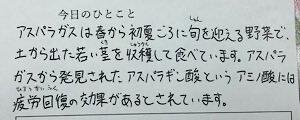 今日のひとこと
アスパラガスは春から初夏ごろに旬を迎える野菜で、
土から出た若い茎を収穫して食べています。アスパラ
ガスから発見されたアスパラギン酸というアミノ酸には
疲労回復の効果があるとされています。